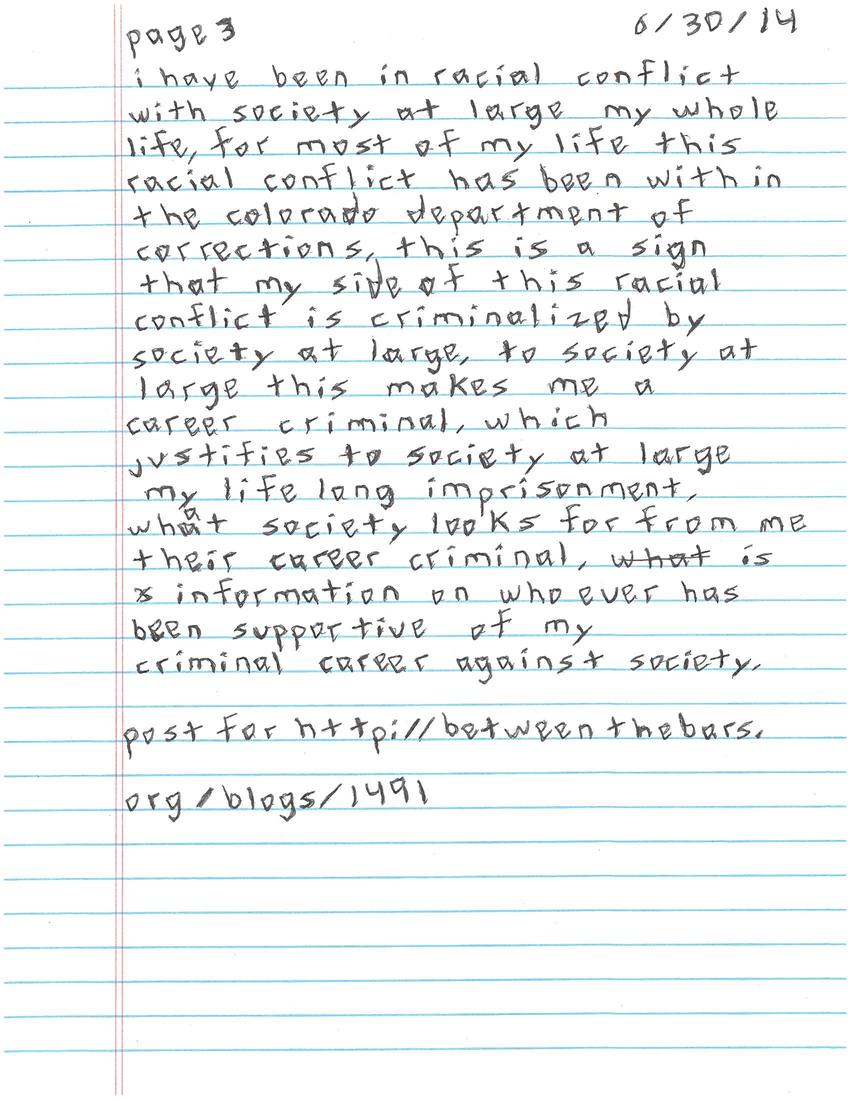 page 3 6/30/14
i have been in racial conflict
with society at large my whole
life, for most of my life this
racial conflict has been with in
the colorado department of
corrections, this is a sign
that my side of this racial
conflict is criminalized by
society at large, to society at
large this makes me a
career criminal, which
justifies to society at large
my life long imprisonment,
what society looks for from me
their career criminal, ~~what~~ is
information on who ever has
been supportive of my
criminal career against society.
post for http://betweenthebars.
org/blogs/1491